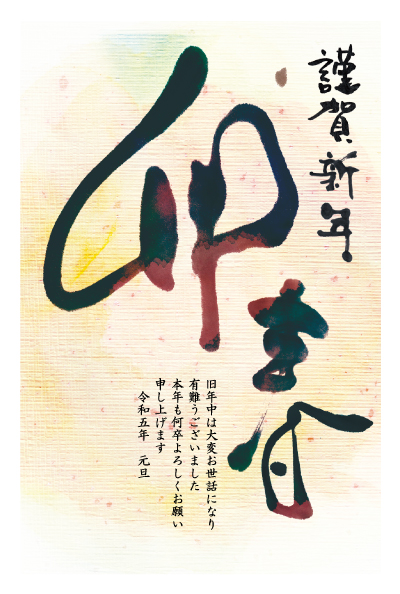 謹賀新年
卯
春
旧年中は大変お世話になり
有難うございました
本年も何卒よろしくお願い
申し上げます
令和五年　元旦